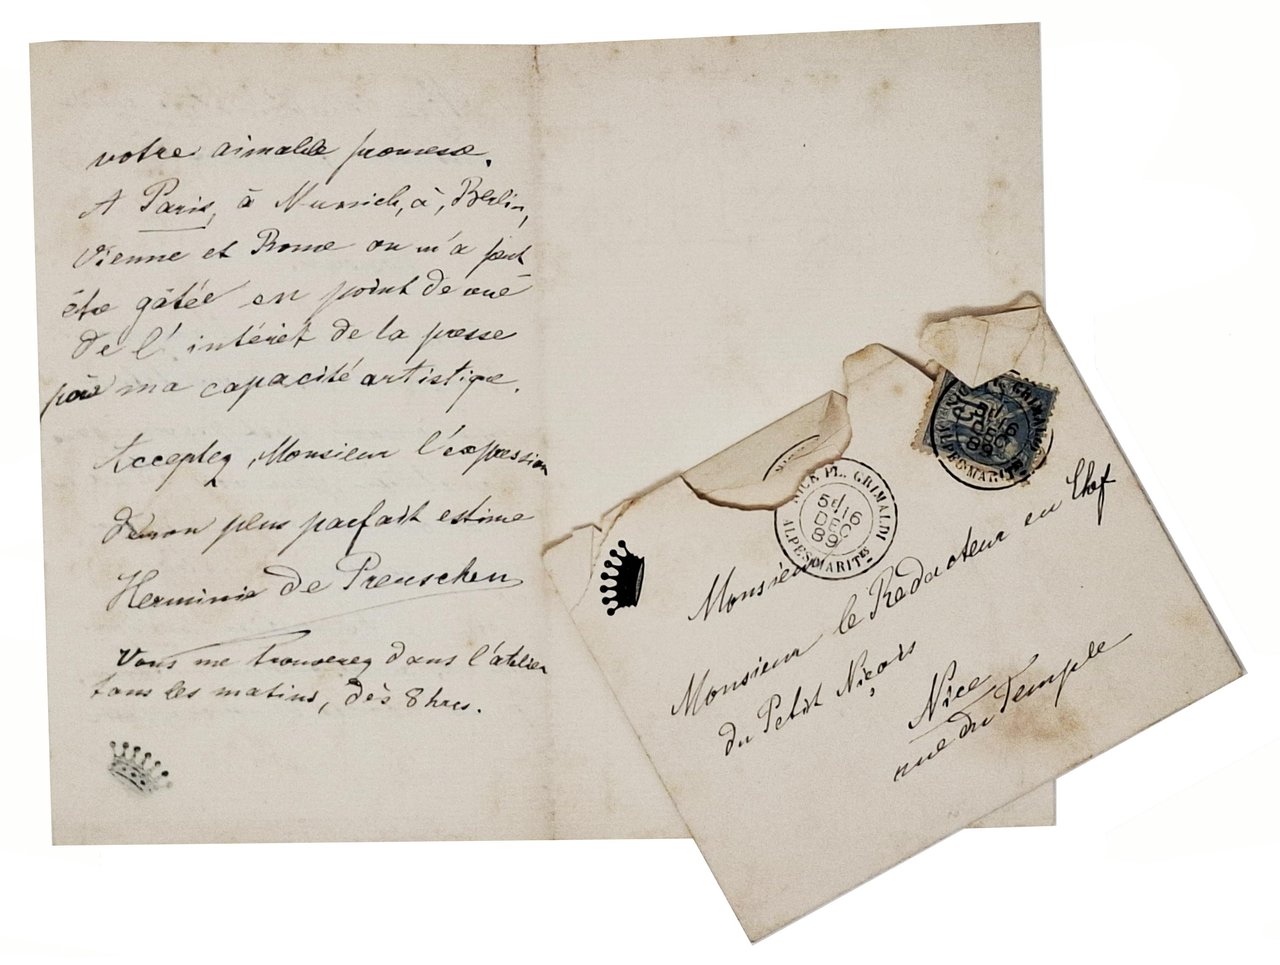 votre aimable promesse.
A Paris, à Munich, à, Berlin,
Vienne et Rome on m'a peut
être gâtée en point de vue
de l'intérêt de la presse
pour ma capacité artistiqe.
Acceptez, Monsieur l'expression
de mon plus parfait estime
Herminie de Preuschen
Vous me trouverez dans l'atelier
tous les matins, dès 8 hres.
NICE PL. GRIMALDI
5E 16
DEC
89
ALPES MARITES
Monsieur
Monsieur le Redacteur en Chef
du Petit Niçois
Nice
rue du Temple